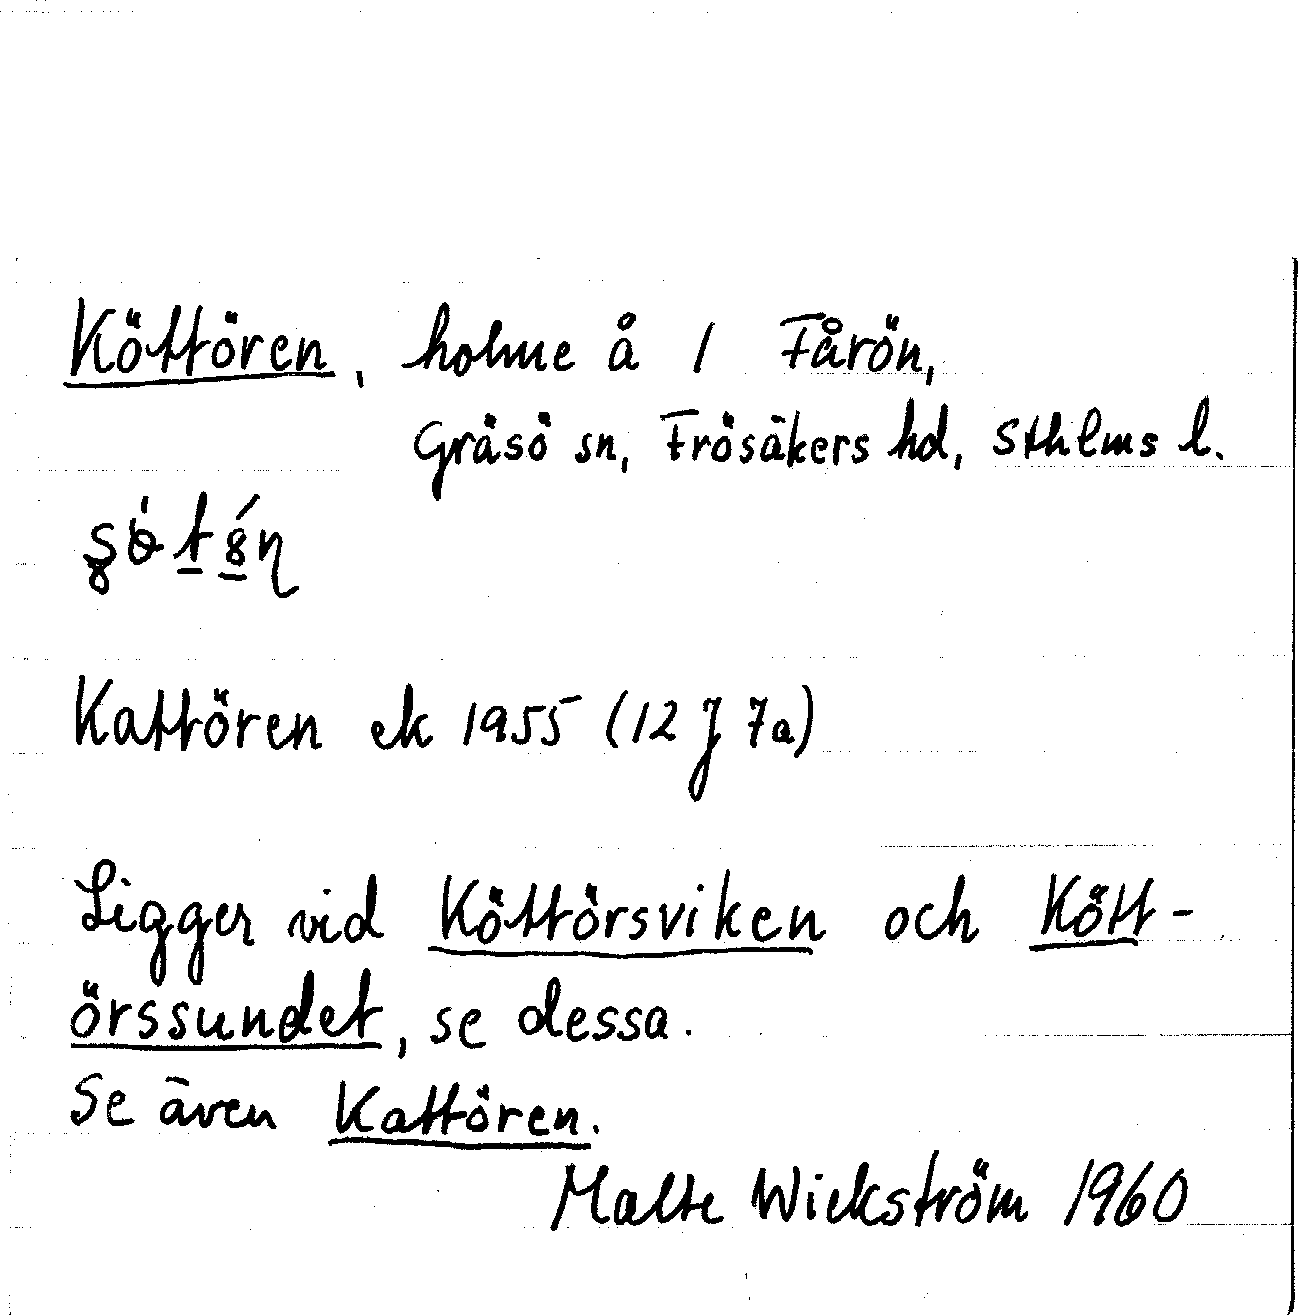 Köttören, holme å 1 Fårön,
Gräsö sn, Frösåkers hd, Sthlms l.
Kattören ek 1955 (12 J 7a)
Ligger vid Köttörsviken och Kött-
örssundet, se dessa.
Se även Kattören.
Malte Wickström 1960